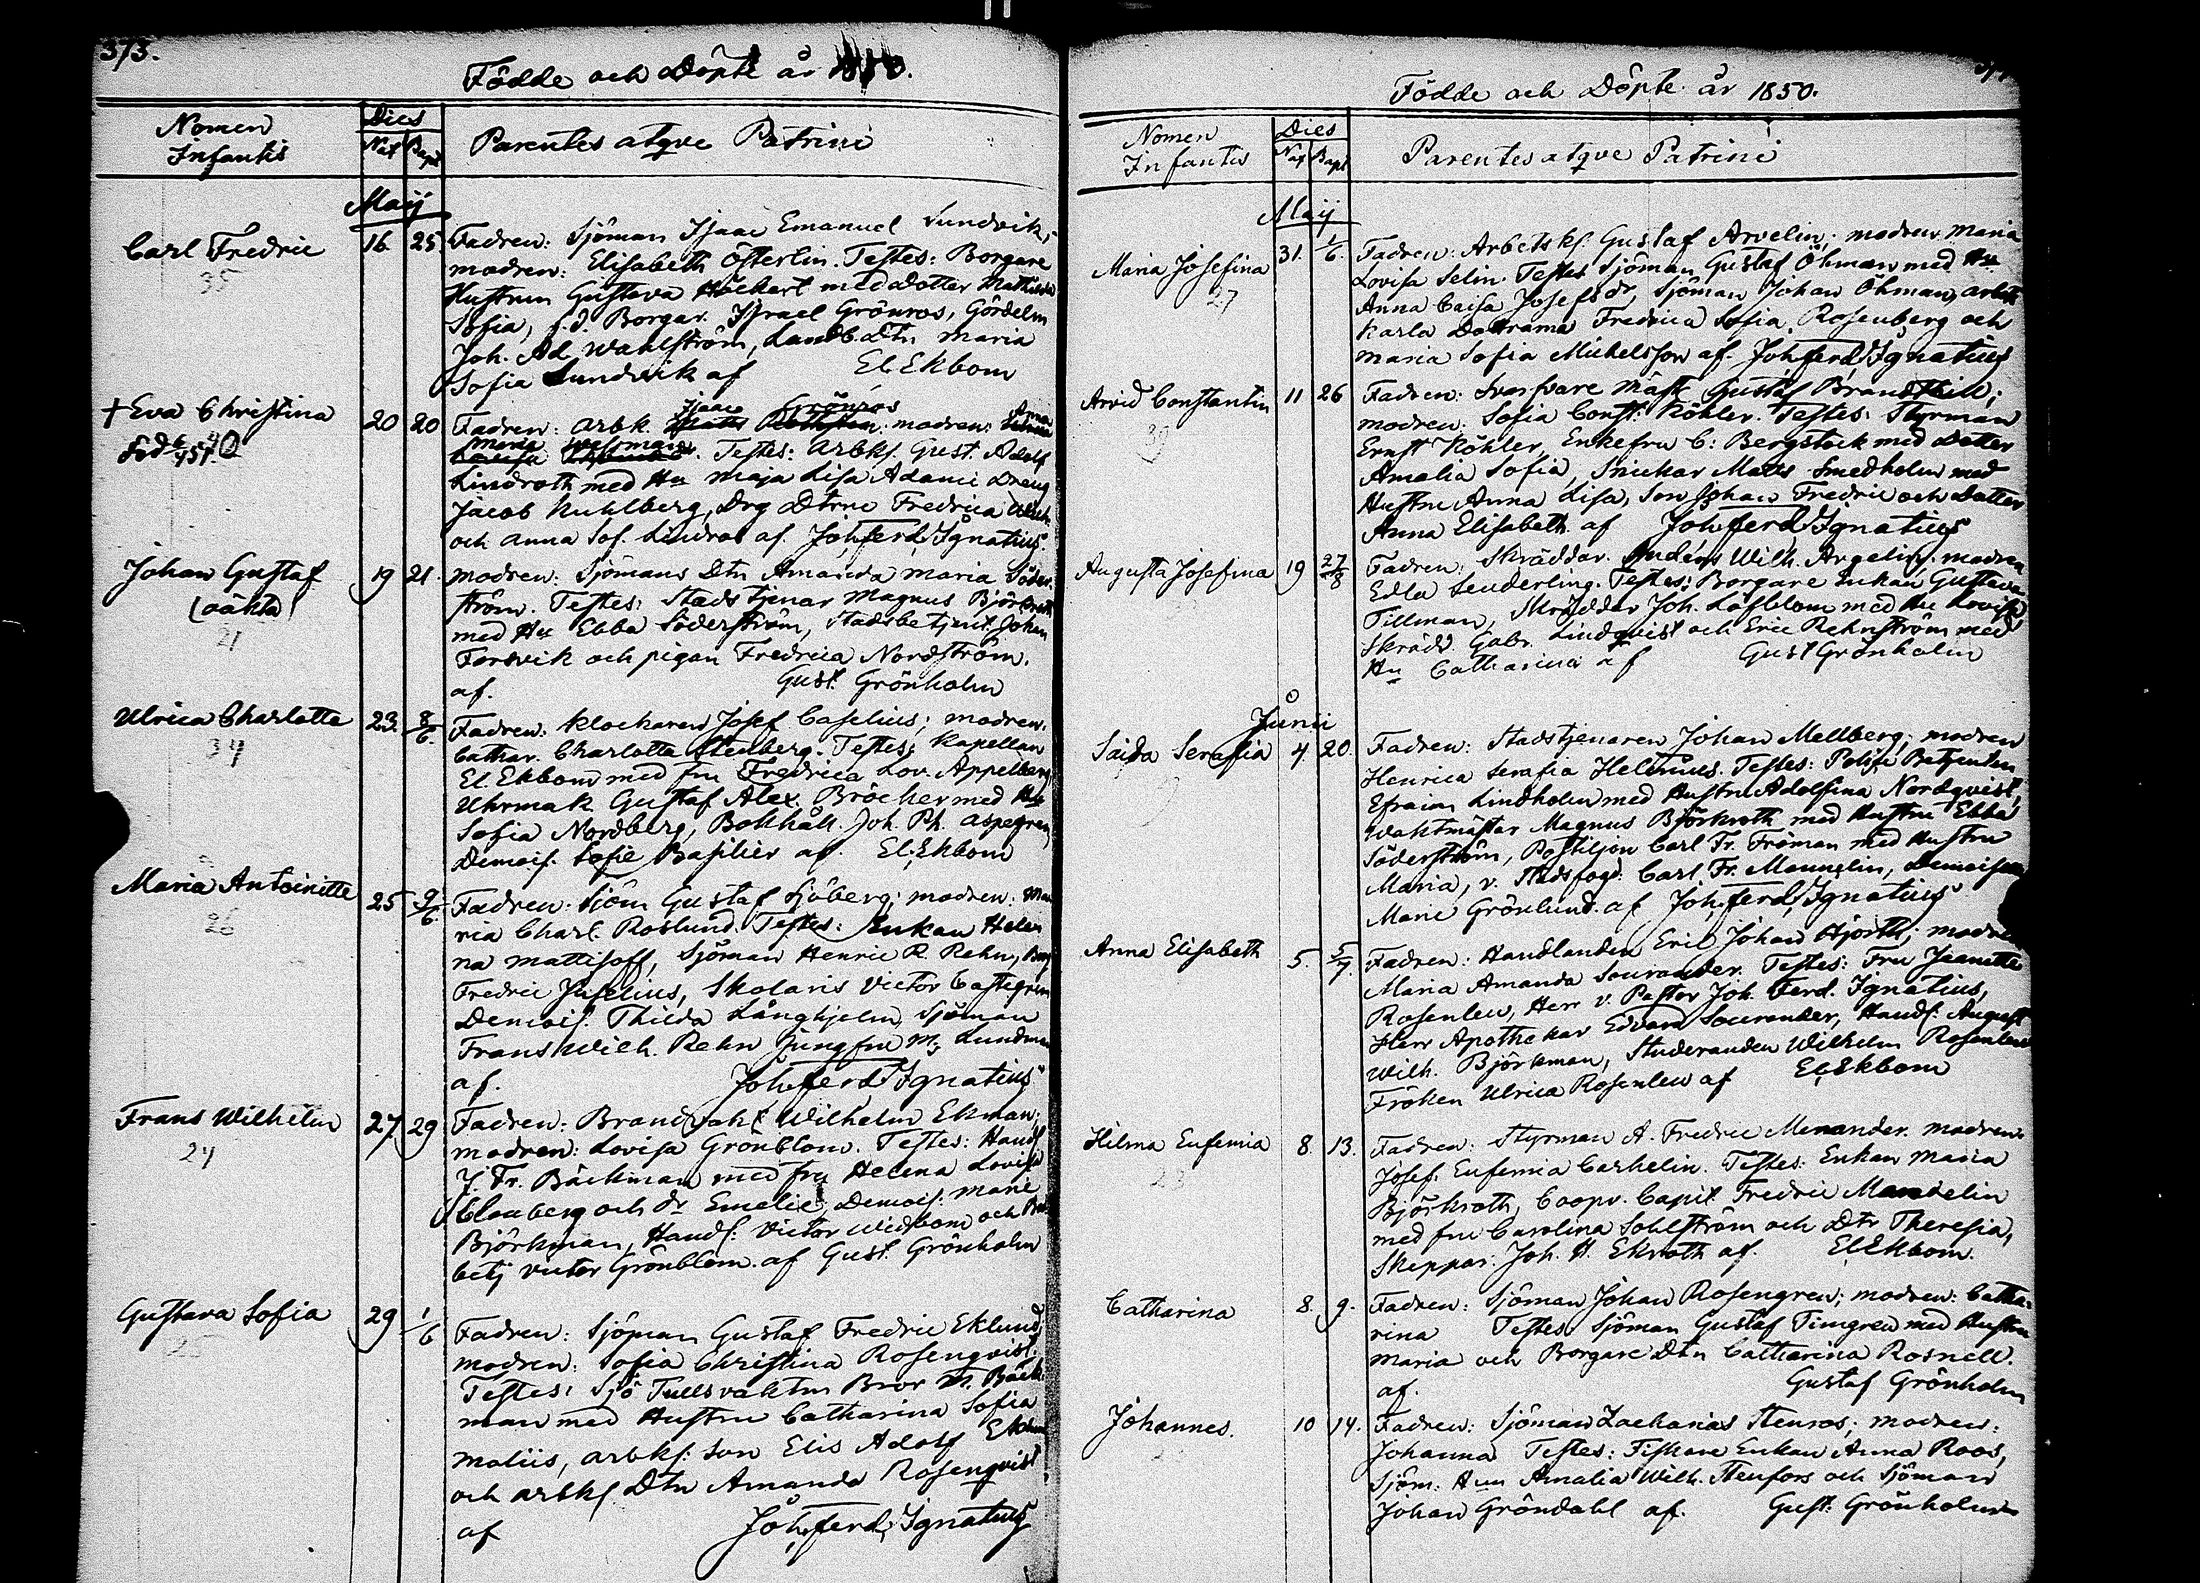 373.
Födde och Döpte år
Nomen Infantis
Dies
Nat Bapt
Parentes atqve Patrini
Maij
Carl Fredric 16. 25. Fadren: Sjöman Isaac Emanuel Lundvik,
35
modren: Elisabeth Österlin. Testes: Borgare
Hustrun Gustava Höckert med dotter Mathilda
Sofia, f.d. Borgar. Israel Grönros, Gördelm
Joh. Ad. Wahlström, Landb. Dtn Maria
Sofia Lundvik af El. Ekbom
† Eva Christina 20 20 Fadren: Arbk. Isaac Grönros modren: Anna
Maria. Testes: Arbks. Gust. Adolf
Lindroth med Hu Maja Lisa Adamsdr Dreng
Jacob Kuhlberg, Drg Dtrne Fredrica
och Anna Sof. Lindros af. Joh. Ferd. Ignatius
Johan Gustaf 19 21. modren: Sjömans Dtn Amanda Maria Söder
(oäkta)
21
ström. Testes: Stads tjenar Magnus Björkroth
med Hu Ebba Söderström, Stadsbetjent. Johan
Forsvik och pigan Fredrica Nordström.
af. Gust. Grönholm
Ulrica Charlotta 23. 8/6. Fadren: Klockaren Josef Caselius; modren.
34
Cathar. Charlotta Stenberg. Testes: Kapellan
El. Ekbom med fru Fredrica Lov. Appelberg
Uhrmak Gustaf Alex. Bröcker med Hu
Sofia Nordberg, Bokhåll. Joh. Ph. Aspegren
Demois. Sofie Basilier af. El. Ekbom
Maria Antoinitte 25 9/6. Fadren: Sjöm Gustaf Sjöberg; modren: Ma
26
ria Charl. Roslund. Testes: Enkan Hele
na Mattisoff, Sjöman Henric R. Rehn,
Fredric Juselius, Skolaris Victor Castegren
Demois. Thilda Långhjelm, Sjöman
Frans Wilh. Rehn Jungfru M. Lundman
af. Joh. Ferd. Ignatius
Frans Wilhelm 27. 29 Fadren: Brandvakt Wilhelm Ekman;
24
modren: Lovisa Grönblom. Testes: Handl
J. Fr. Bäckman med fru Helena Lovisa
Clouberg och dr Emelie, Demois. Marie
Björkman, Handl: Victor Widbom och
betj Victor Grönblom. af Gust. Grönholm
Gustava Sofia 29 1/6 Fadren: Sjöman Gustaf Fredric Eklund
25
modren: Sofia Christina Rosenqvist.
Testes: Sjö Tullsvaktm Bror M. Bäck
man med Hustru Catharina Sofia
Maliis, Arbks: Son Elis Adolf
och arbks Dtn Amanda Rosenqvist
af Joh. Ferd. Ignatius
Födde och Döpte år 1850.
Nomen Infantis
Dies
Nat Bapt
Parentes atqve Patrini
Maij
Maria Josefina 31. 1/6. Fadren: Arbetsk. Gustaf Arvelin; modren Maria
27
Lovisa Selin. Testes Sjöman Gustaf Öhman med Hu
Anna Caisa Josefsdr, Sjöman Johan Öhman, arbets
karla Dottrarna Fredrica Sofia Rosenberg och
Maria Sofia Michelsson af. Joh. Ferd. Ignatius
Arvid Constantin 11 26 Fadren: Svarfvare Mäst. Gustaf Brandthill;
30
modren: Sofia Const. Köhler. Testes: Styrman
Ernst Köhler, Enkefru C: Bergstock med Dotter
Amalia Sofia, Snickar Matts Smedholm med
Hustru Anna Lisa, Son Johan Fredric och Dotter
Anna Elisabeth. af Joh. Ferd. Ignatius
Augusta Josefina 19 27/8 Fadren: Skräddar. Anders Wilh. Argelin; modren
Edla Senderling. Testes: Borgare Enkan Gustava
Tillman, Skräddar Joh. Löfblom med Hu Lovisa,
Skrädd. Gabr. Lindqvist och Eric Rehnström med
Hu Catharina af Gust Grönholm
Junii
Saida Serafia 4. 20. Fadren: Stadstjenaren Johan Mellberg; modren
Henrica Serafia Helenius. Testes: Polise Betjenten
Efraim Lindholm med Hustru Adolfina Nordqvist,
Waktmästar Magnus Björkroth med Hustru Ebba
Söderström, Postiljon Carl Fr. Fröman med Hustru
Maria, v. Stadsfogd: Carl Fr. Mannelin, Demoiselle
Marie Grönlund. af Joh. Ferd. Ignatius
Anna Elisabeth 5. 5/7. Fadren: Handlanden Eric Johan Hjorth; modren
Maria Amanda Sourander. Testes: Fru Jeanette
Rosenlew, Herr v. Pastor Joh. Ferd. Ignatius,
Herr Apothekar Edvard Sourander, Handl. August
Wilh. Björkman, Studeranden Wilhelm Rosenlew
Fröken Ulrica Rosenlew af El. Ekbom
Hilma Eufemia 8. 13. Fadren: Styrman A. Fredric Menander. modren
28
Josef. Eufemia Carhelin. Testes: Enkan Maria
Björkroth, Coopv. Capit. Fredric Mandelin
med fru Carolina Sohlström och Dtr Theresia,
Skeppar: Joh. H. Ekroth af. El. Ekbom.
Catharina 8. 9. Fadren: Sjöman Johan Rosengren; modren: Catha-
rina Testes: Sjöman Gustaf Timgren med Hustru
Maria och Borgare Dtn Catharina Rosnell.
af. Gustaf Grönholm
Johannes. 10 14. Fadren: Sjöman Zacharias Stenros; modren:
Johanna Testes: Fiskare Enkan Anna Roos,
Sjöm: Hun Amalia Wilh. Stenfors och Sjöman
Johan Gröndahl af. Gust. Grönholm